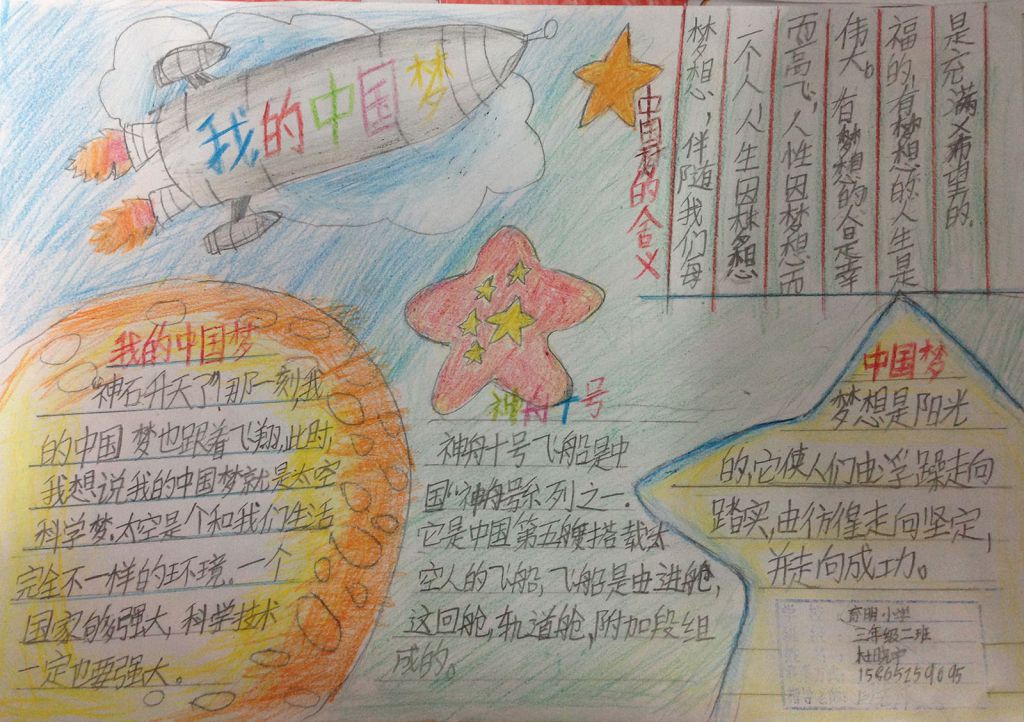 我的中国梦
中国梦的含义
梦想，伴随我们每
一个人，人生因梦想
而高飞，人性因梦想而
伟大。有梦想的人是幸
福的，有梦想的人生是
是充满义希望的。
我的中国梦
“神石升天了”那一刻，我
的中国梦也跟着飞翔，此时，
我想说我的中国梦就是太空
科学梦.太空是个和我们生活
完全不一样的环境。一个
国家的强大，科学技术
一定也要强大。
神舟十号
神舟十号飞船是中
国“神舟”号系列之一.
它是中国第五艘搭载太
空人的飞船，飞船是由进舱，
这回舱，轨道舱，附加段组
成的。
中国梦
梦想是阳光
的，它使人们由浮躁走向
踏实，由彷徨走向坚定，
并走向成功。
育明小学
三年级二班